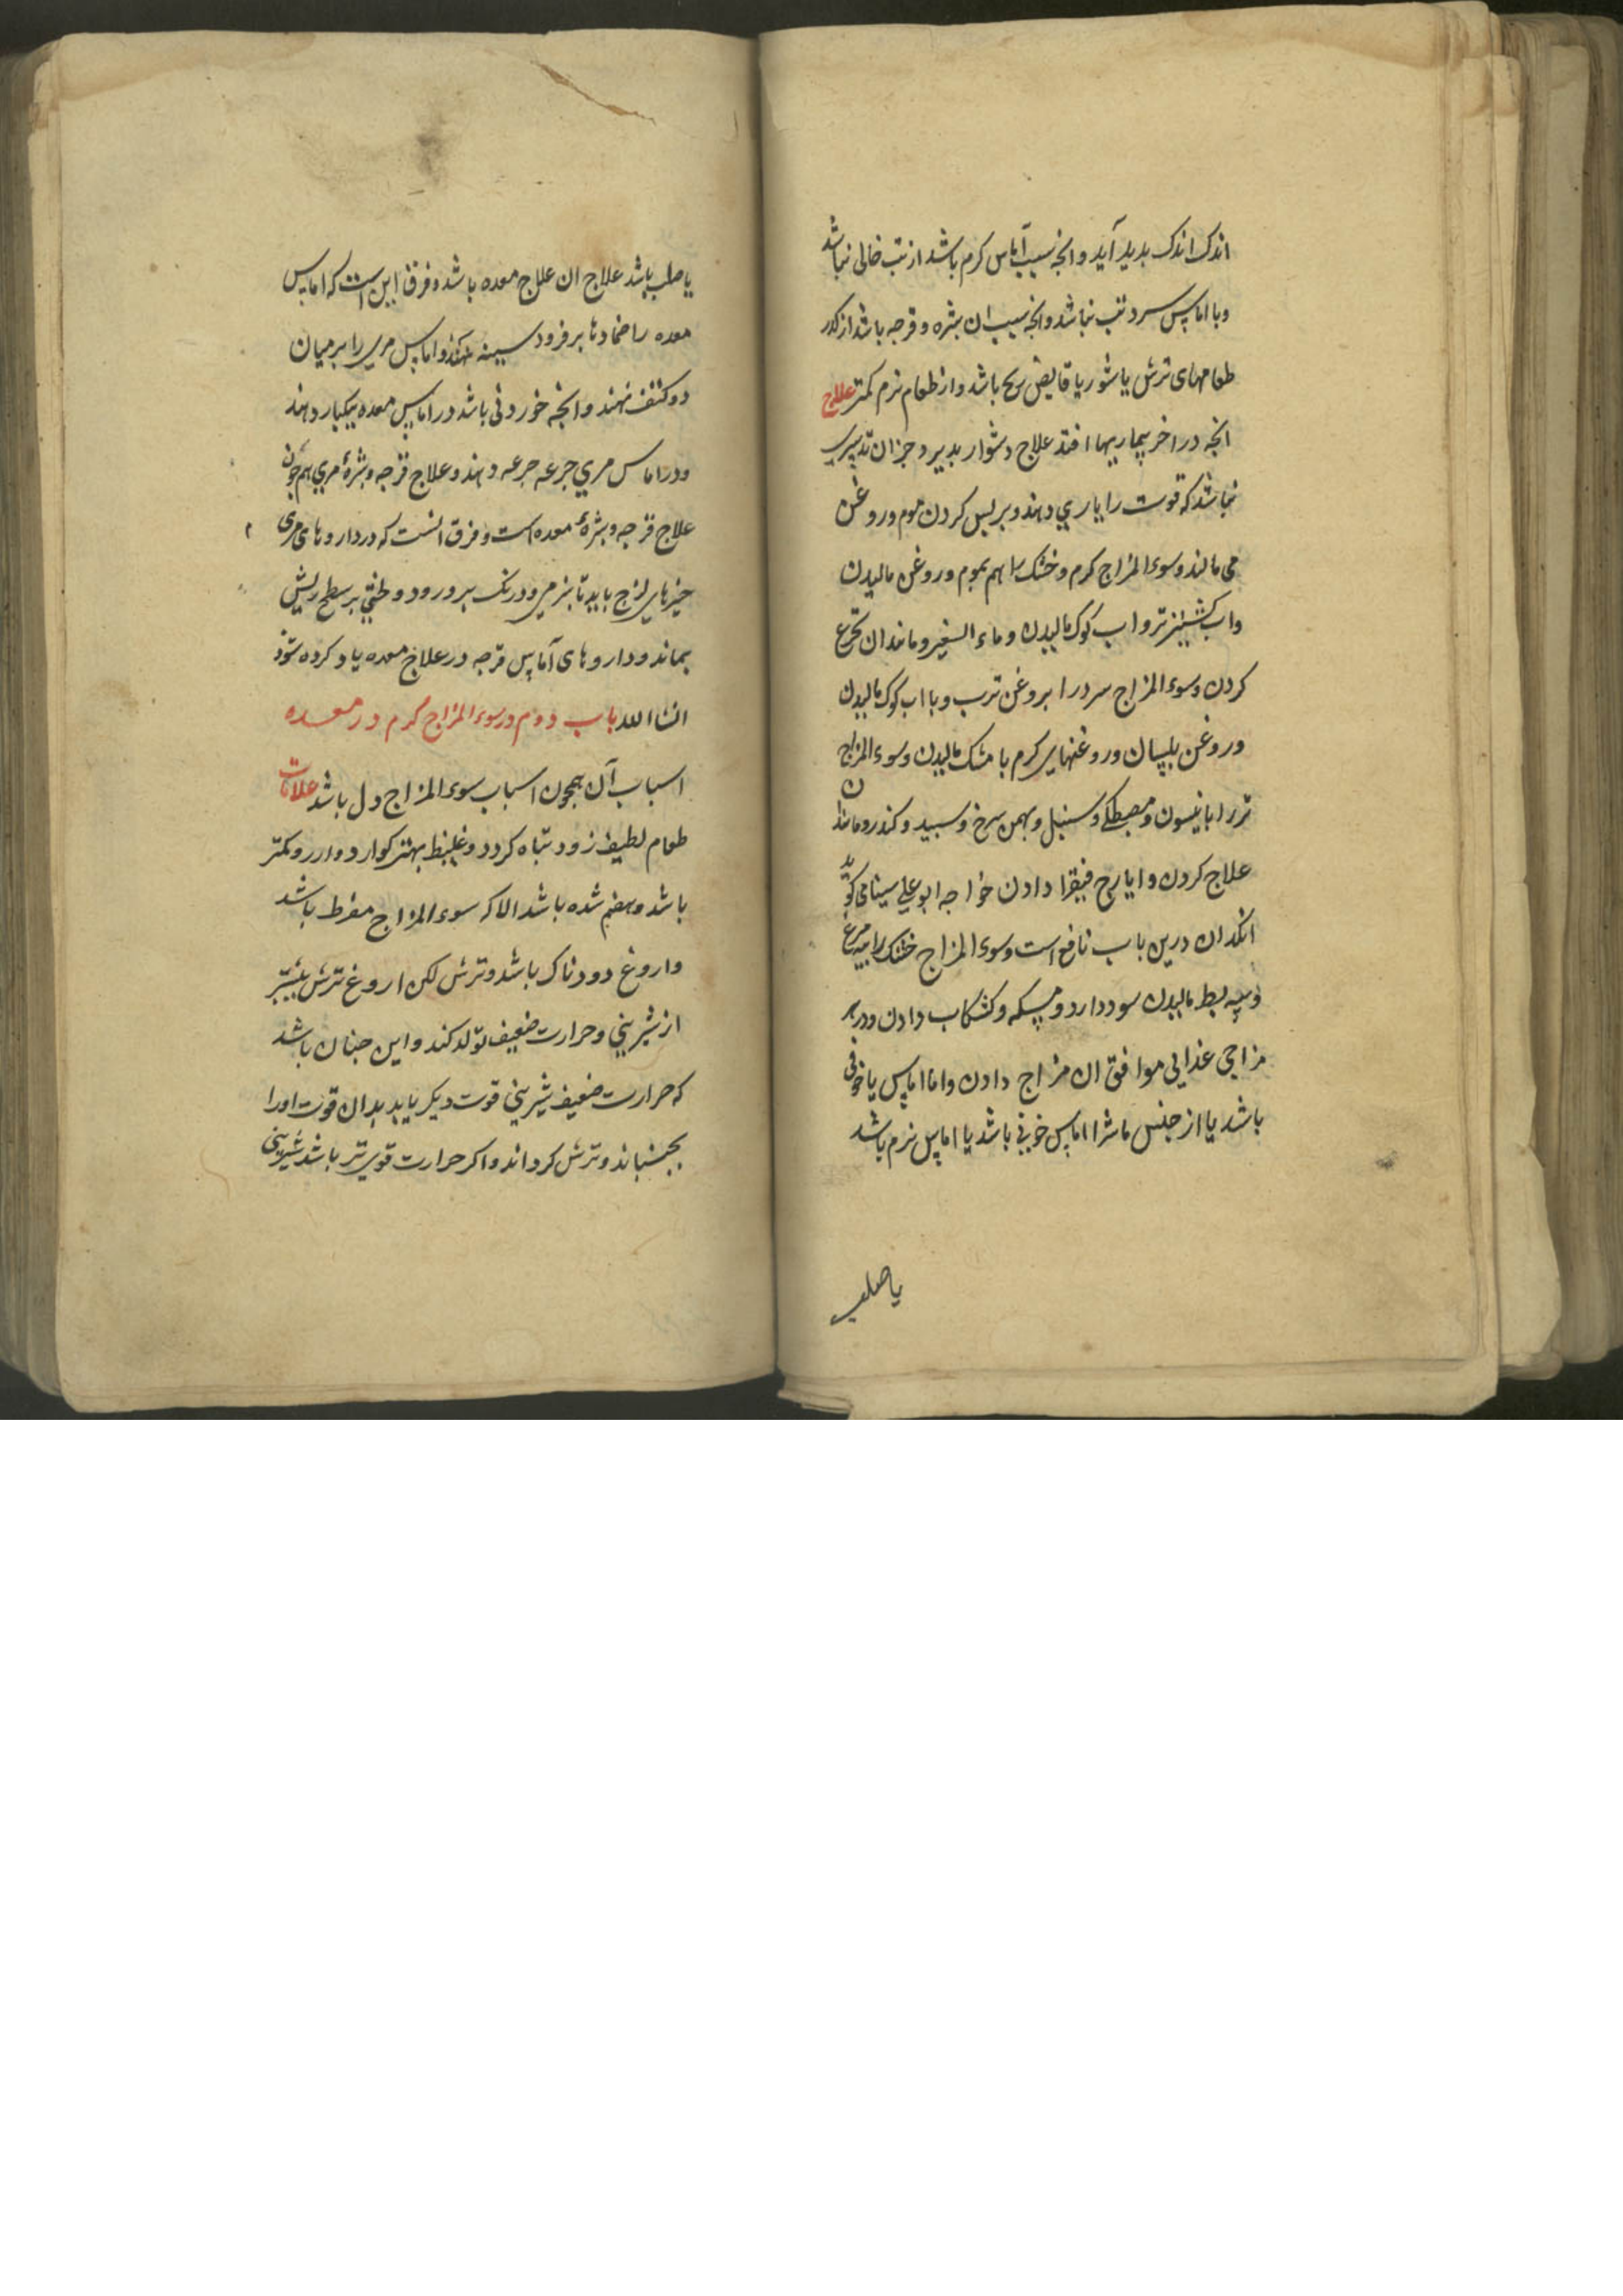 اندک اندک بدید آید و انجه سبب آماس کرم باشد از تب خالی نباشد
و با اماس سرد تب نباشد و انجه سبب ان بثره و قرجه باشد از کذر
طعامهای ترش یا شور یا قابض رنج باشد و از طعام نرم کمتر علاج
انجه در اخر بیماریها افتد علاج دشوار بدیرد جزان تدبیری
نباشد که قوت را یاری دهند و بر لیس کردن موم و روغن
می مالند و سوء المزاج کرم و خشک را هم بموم و روغن مالیدن
و اب کشنیز تر و اب کوک مالیدن و ماء الشعیر و مانند ان تجرع
کردن و سوء المزاج سرد را بروغن ترب و با اب کوک مالیدن
و روغن بلسان و روغنهای کرم با مشک مالیدن و سوء المزاج
تر را بانیسون و مصطکی و سنبل و بهمن سرخ و سبید و کندر و مانند ان
علاج کردن و ایارج فیقرا دادن خواجه ابو علی سینا می کوید
انکدان درین باب نافع است و سوء المزاج خشک را بیه مرغ
و بیه بط مالیدن سود دارد و مسکه و کشکاب دادن و در هر
مزاجی غذایی موافق ان مزاج دادن و اما اماس یا خونی
باشد یا از جنس ماشرا اماس خونی باشد یا اماس نرم باشد
یا صلب
یا صلب باشد علاج ان علاج معده باشد و فرق این است که اماس
معده را ضمادها بر فرود سینه نهند و اماس مری را بر میان
دو کتف نهند و انجه خوردنی باشد در اماس معده بیکبار دهند
و در اماس مری جرعه جرعه دهند و علاج قرجه و بثرهٔ مری هم جون
علاج قرجه و بثرهٔ معده است و فرق انست که در داروهای مری
جیزهای لزج باید تا بنرمی و درنک برود و لختی بر سطح ریش
بماند و داروهای آماس قرجه در علاج معده یاد کرده شود
انشا الله باب دوم در سوء المزاج کرم در معده
اسباب آن همجون اسباب سوء المزاج دل باشد علامات
طعام لطیف زود تباه کردد و غلیظ بهتر کوارد و ارزو کمتر
باشد و هضم شده باشد الا که سوء المزاج مفرط باشد
و اروغ دودناک باشد و ترش لکن اروغ ترش بیشتر
از شیرینی و حرارت ضعیف تولد کند و این جنان باشد
که حرارت ضعیف شیرینی قوت دیکر یابد بدان قوت او را
بجنباند و ترش کرداند و اکر حرارت قوی تر باشد شیرینی